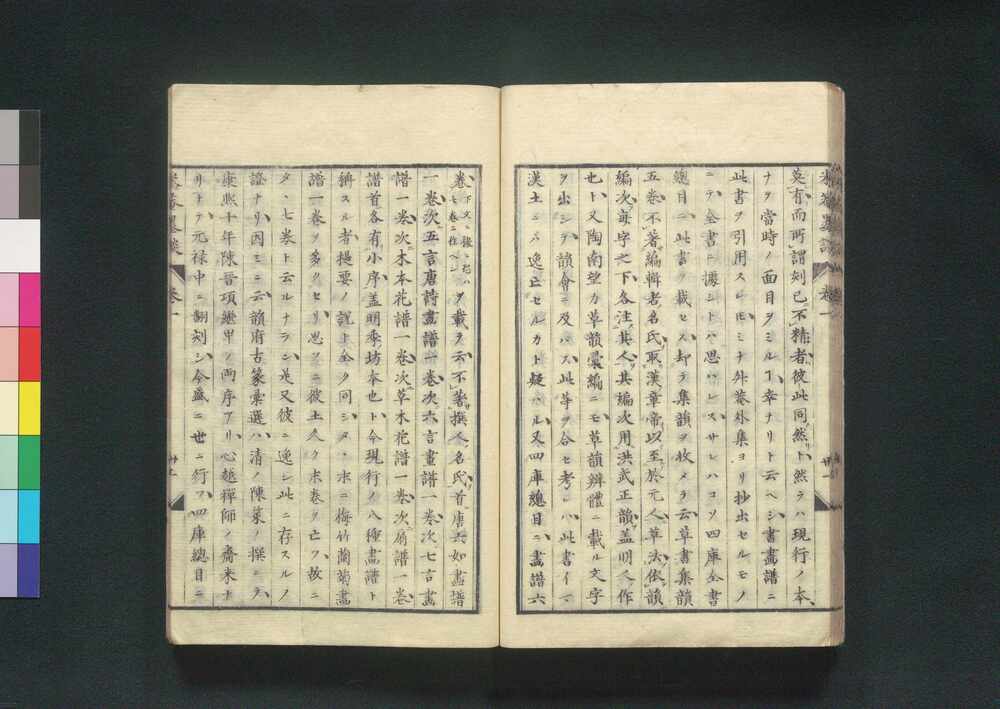 莫有而所謂刻已不精者彼此同然ト然ラハ現行ノ本
ナヲ當時ノ面目ヲミルヿ幸ナリト云ヘシ書畫譜ニ
此書ヲ引用スルモミナ外巻外集ヨリ抄出セルモノ
ニテ全書ニ據シトハ思ハレスサレハコソ四庫全書
總目ニ此書ヲ載セス却テ集韻ヲ收メテ云草書集韻
五巻不著編輯者名氏取漢章帝以至於元人草法依韻
編次毎字之下各注其人其編次用洪武正韻蓋明人作
也ト又陶南望カ草韻彙編ニモ草韻辨體ニ載ル文字
ヲ出シテ韻會ニ及ハス此等ヲ合セ考レハ此書イマ
漢土ニハ逸亡セルカト疑ハル又四庫總目ニ畫譜六
卷
ヲ載テ云不著撰人名氏首唐六如畫譜
一巻次五言唐詩畫譜一巻次六言畫譜一巻次七言畫
譜一巻次木本花譜一巻次草木花譜一巻次扇譜一巻
譜首各有小序蓋明季坊本也ト今現行ノ八種畫譜ト
稱スル者提要ノ説ト全ク同シタヽ本ニ梅竹蘭菊畫
譜一巻ヲ多クセリ思フニ彼土久ク末巻ヲ亡フ故ニ
タヽ七巻ト云ルナラン是又彼ニ逸シ此ニ存スルノ
證ナリ因ミニ云韻府古篆彙選ハ清ノ陳策ノ撰ニテ
康熙十年陳晋項繼甲ノ両序アリ心越禪師ノ齎来ナ
リトテ元禄中ニ翻刻シ今盛ニ世ニ行フ四庫總目ニ